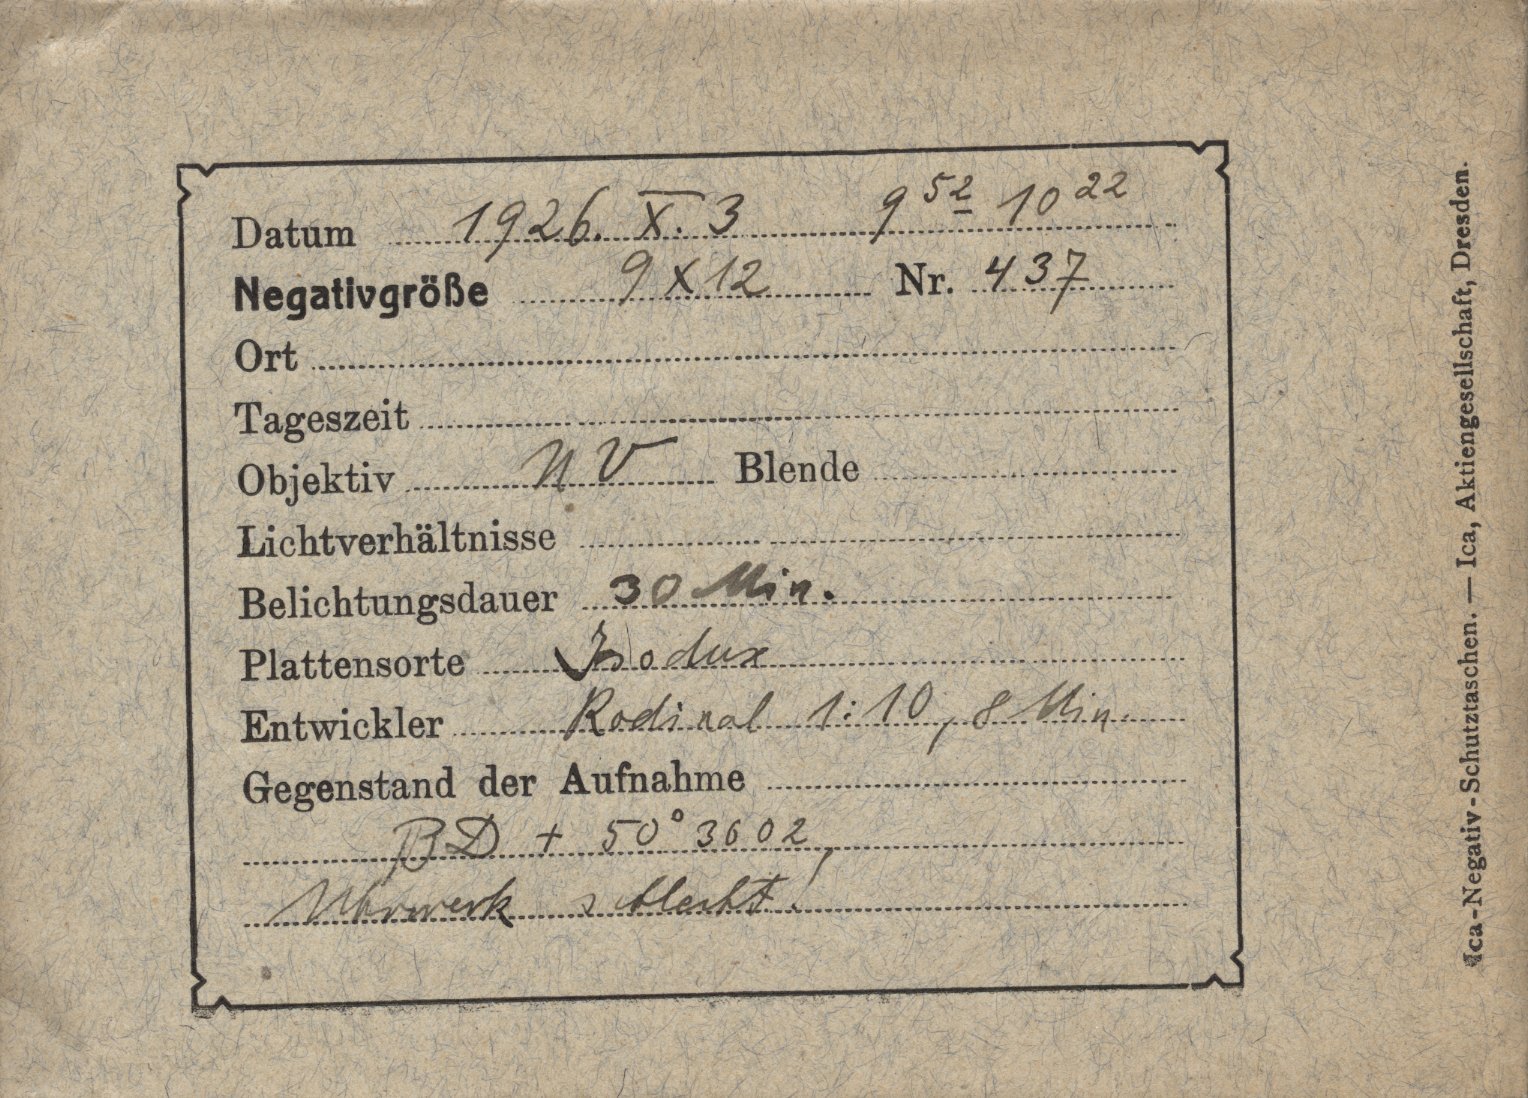 Datum 1926. X. 3 9 52 10 22
Negativgröße 9 X 12 Nr. 437
Ort
Tageszeit
Objektiv NV Blende
Lichtverhältnisse
Belichtungsdauer 30 Min.
Plattensorte Isodux
Entwickler Rodinal 1:10, 8 Min.
Gegenstand der Aufnahme
BD + 50° 3602,
Uhrwerk schlecht!
Ica-Negativ-Schutztaschen. — Ica, Aktiengesellschaft, Dresden.